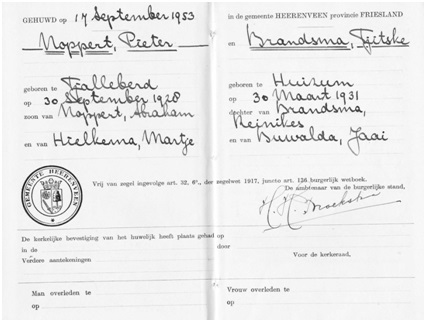 GEHUWD op 17 September 1953
Noppert, Pieter
geboren te Tjalleberd
op 30 September 1928
zoon van Noppert, Abraham
en van Hielkema, Martje
in de gemeente HEERENVEEN provincie FRIESLAND
en Brandsma, Tjitske
geboren te Huizum
op 30 Maart 1931
dochter van Brandsma,
Reinikes
en van Buwalda, Jaai
Vrij van zegel ingevolge art. 32, 6°., der zegelwet 1917, juncto art. 136 burgerlijk wetboek.
De ambtenaar van de burgerlijke stand,
GEMEENTE HEERENVEEN
De kerkelijke bevestiging van het huwelijk heeft plaats gehad op
in de
door
Verdere aantekeningen
Voor de kerkeraad,
Man overleden te
op
Vrouw overleden te
op